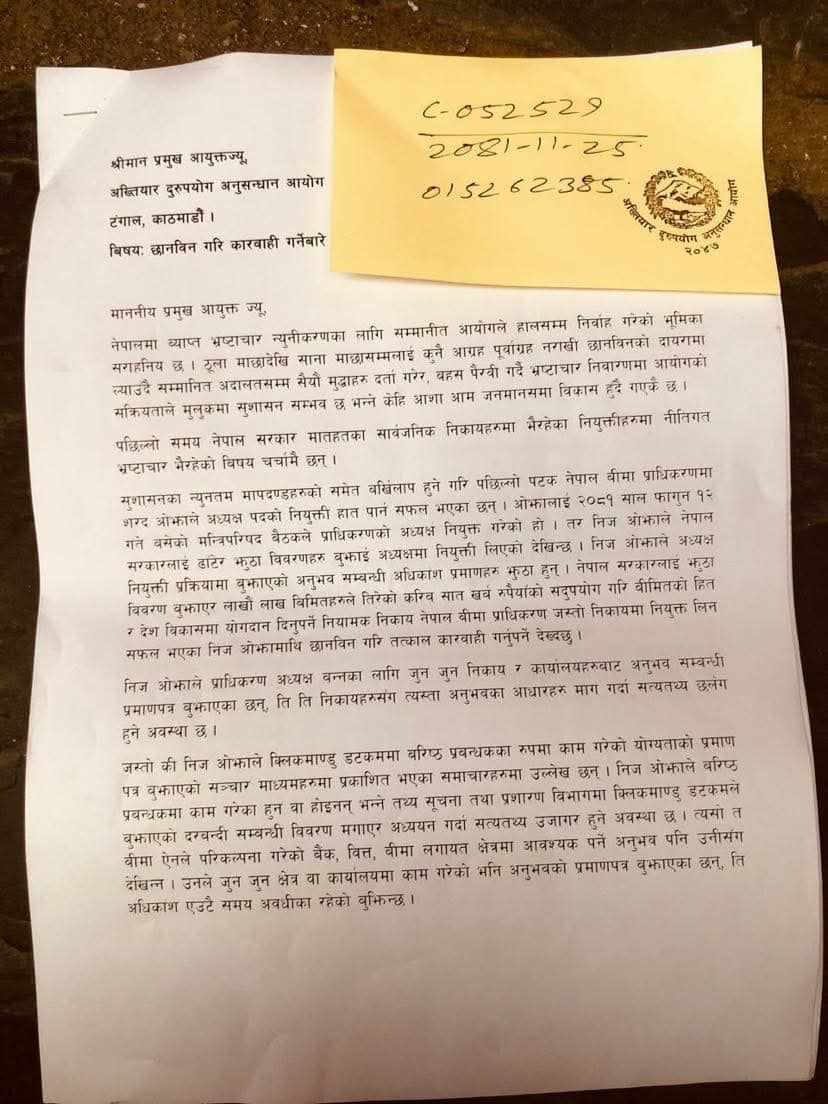 C-052529
2081-11-25
015262385
अख्तियार दुरुपयोग अनुसन्धान आयोग
२०४७
श्रीमान प्रमुख आयुक्तज्यू,
अख्तियार दुरुपयोग अनुसन्धान आयोग
टंगाल, काठमाडौं ।
बिषय: छानविन गरि कारवाही गर्नेबारे
माननीय प्रमुख आयुक्त ज्यू,
नेपालमा व्याप्त भ्रष्टाचार न्युनीकरणका लागि सम्मानीत आयोगले हालसम्म निर्वाह गरेको भूमिका
सराहनिय छ । ठूला माछादेखि साना माछासम्मलाई कुनै आग्रह पूर्वाग्रह नराखी छानविनको दायरामा
ल्याउदै सम्मानित अदालतसम्म सैयौ मुद्धाहरु दर्ता गरेर, बहस पैरवी गर्दै भ्रष्टाचार निवारणमा आयोगको
सक्रियताले मुलुकमा सुशासन सम्भव छ भन्ने केहि आशा आम जनमानसमा विकास हुदै गएकै छ ।
पछिल्लो समय नेपाल सरकार मातहतका सार्वजनिक निकायहरुमा भैरहेका नियुक्तीहरुमा नीतिगत
भ्रष्टाचार भैरहेको विषय चर्चामै छन् ।
सुशासनका न्युनतम मापदण्डहरुको समेत वर्खिलाप हुने गरि पछिल्लो पटक नेपाल वीमा प्राधिकरणमा
शरद ओझाले अध्यक्ष पदको नियुक्ती हात पार्न सफल भएका छन् । ओझालाई २०८१ साल फागुन १२
गते बसेको मन्त्रिपरिषद बैठकले प्राधिकरणको अध्यक्ष नियुक्त गरेको हो । तर निज ओझाले नेपाल
सरकारलाई ढाँटेर झुठा विवरणहरु बुझाई अध्यक्षमा नियुक्ती लिएको देखिन्छ । निज ओझाले अध्यक्ष
नियुक्ती प्रक्रियामा बुझाएको अनुभव सम्बन्धी अधिकाश प्रमाणहरु झुठा हुन् । नेपाल सरकारलाई झुठा
विवरण बुझाएर लाखौं लाख बिमितहरुले तिरेको करिव सात खर्व रुपैयाँको सदुपयोग गरि वीमितको हित
र देश विकासमा योगदान दिनुपर्ने नियामक निकाय नेपाल वीमा प्राधिकरण जस्तो निकायमा नियुक्त लिन
सफल भएका निज ओझामाथि छानविन गरि तत्काल कारवाही गर्नुपर्ने देख्दछु ।
निज ओझाले प्राधिकरण अध्यक्ष बन्नका लागि जुन जुन निकाय र कार्यालयहरुबाट अनुभव सम्बन्धी
प्रमाणपत्र बुझाएका छन्, ति ति निकायहरुसंग त्यस्ता अनुभवका आधारहरु माग गर्दा सत्यतथ्य छर्लंग
हुने अवस्था छ ।
जस्तो की निज ओझाले क्लिकमाण्डु डटकममा बरिष्ठ प्रबन्धकका रुपमा काम गरेको योग्यताको प्रमाण
पत्र बुझाएको सञ्चार माध्यमहरुमा प्रकाशित भएका समाचारहरुमा उल्लेख छन् । निज ओझाले बरिष्ठ
प्रबन्धकमा काम गरेका हुन वा होइनन् भन्ने तथ्य सूचना तथा प्रशारण विभागमा क्लिकमाण्डु डटकमले
बुझाएको दरबन्दी सम्बन्धी विवरण मगाएर अध्ययन गर्दा सत्यतथ्य उजागर हुने अवस्था छ । त्यसो त
वीमा ऐनले परिकल्पना गरेको बैंक, वित्त, वीमा लगायत क्षेत्रमा आवश्यक पर्ने अनुभव पनि उनीसंग
देखिन्न । उनले जुन जुन क्षेत्र वा कार्यालयमा काम गरेको भनि अनुभवको प्रमाणपत्र बुझाएका छन्, ति
अधिकाश एउटै समय अवधीका रहेको बुझिन्छ ।